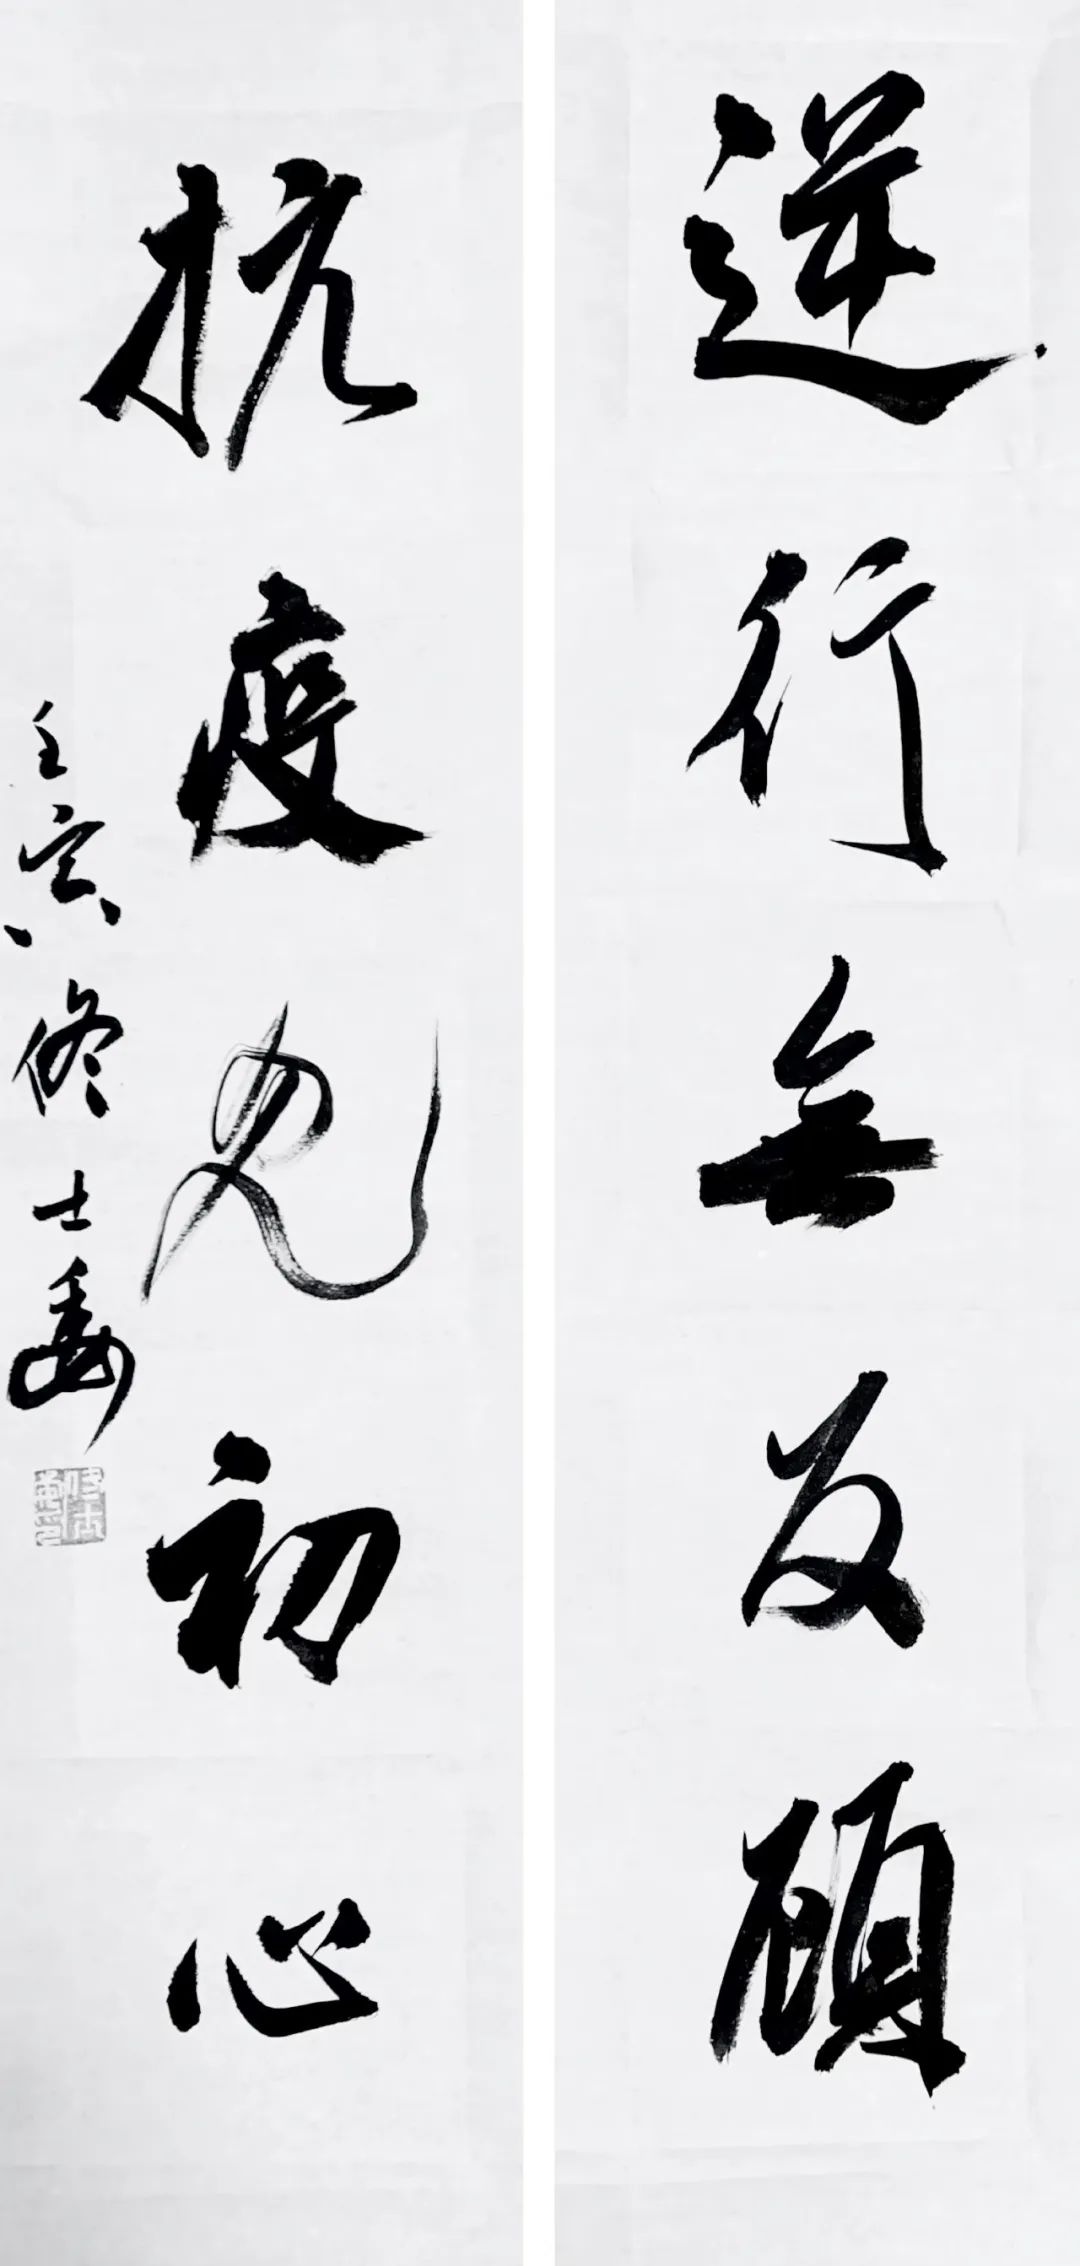 逆行無反顧
抗疫見初心
壬寅修士委